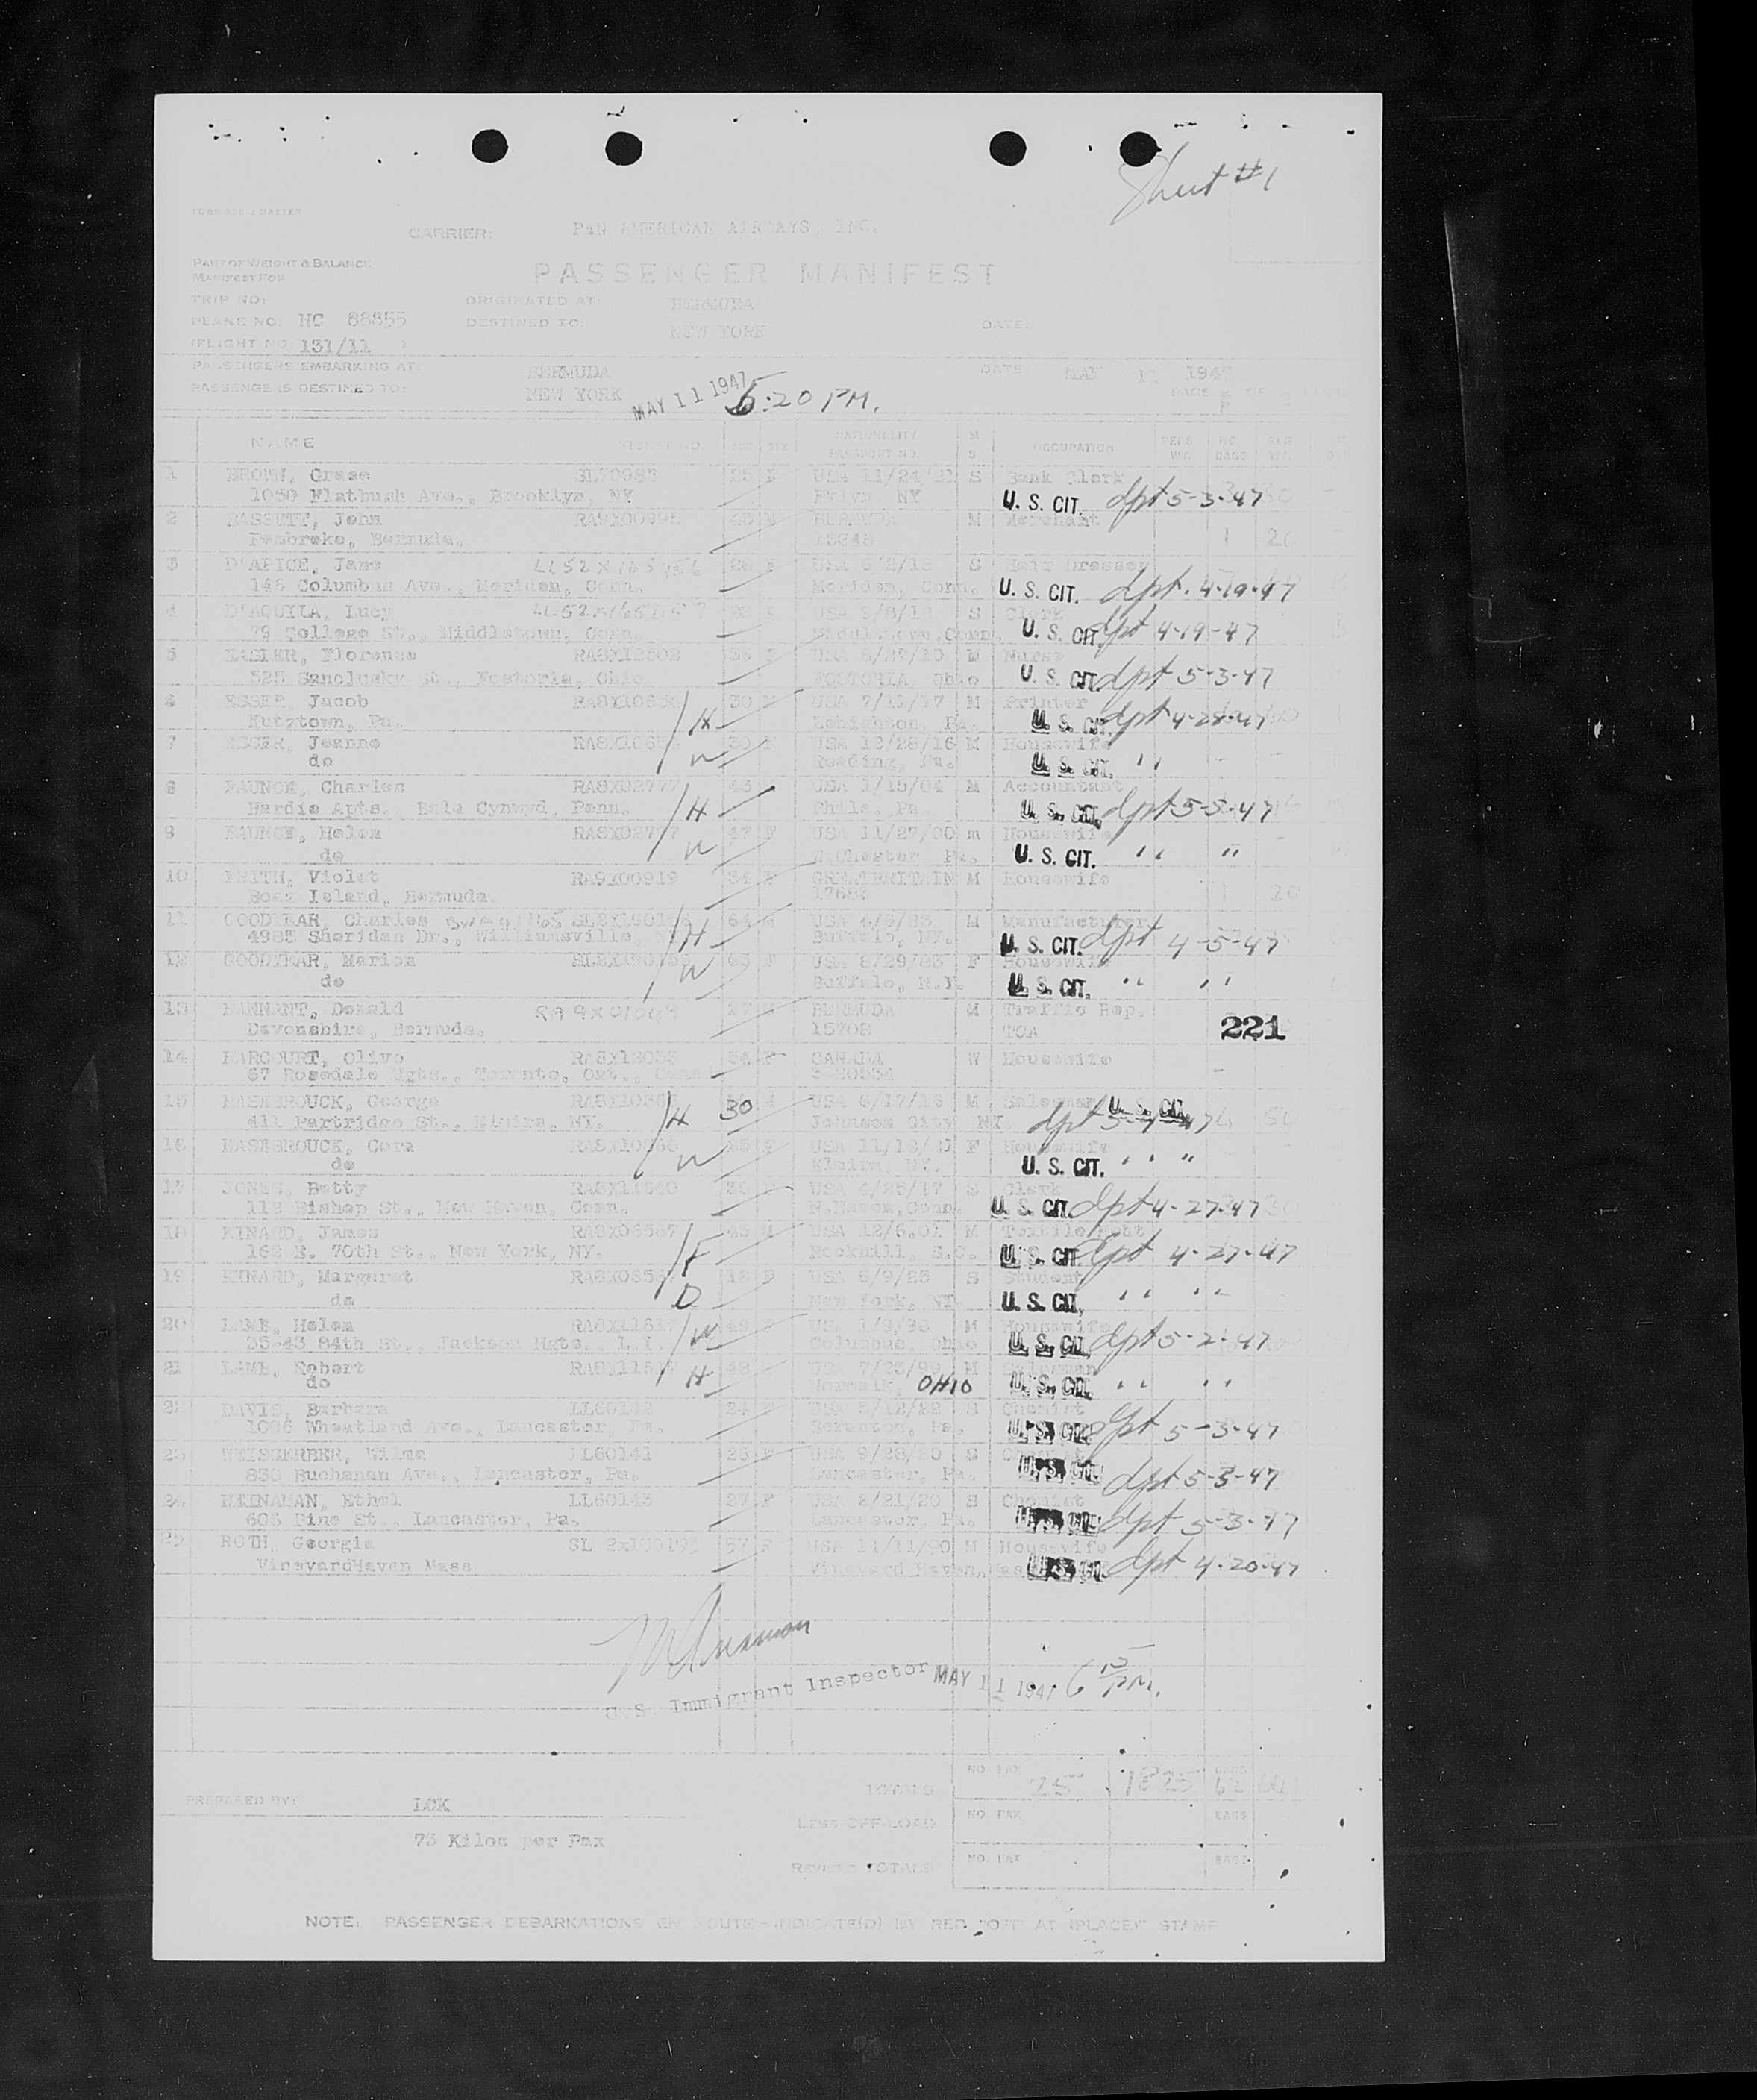 Sheet #1
CARRIER: PAN AMERICAN AIRWAYS, INC.
PART OF WEIGHT & BALANCE
MANIFEST FOR
PASSENGER MANIFEST
TRIP NO: ORIGINATED AT: BERMUDA
PLANE NO. NC 88855 DESTINED TO: NEW YORK DATE:
(FLIGHT NO. 131/11 )
PASSENGERS EMBARKING AT: BERMUDA DATE MAY 11 1947
PASSENGERS DESTINED TO: NEW YORK MAY 11 1947 5:20 PM. PAGE OF
NAME TICKET NO. AGE SEX NATIONALITY PASSPORT NO. M S OCCUPATION PERS WT. NO. BAGS BAG WT.
1 BROWN, Grace 25 F USA 11/24/21 S Bank Clerk
1050 Flatbush Ave., Brooklyn, NY Bklyn, NY U. S. CIT. dpt 5-3-47
2 BASSETT, John RA9X00995 M BERMUDA M Merchant
Pembroke, Bermuda. 1 20
3 D'APICE, Jane F USA S Hair Dresser
146 Columbus Ave., Meriden, Conn. Meriden, Conn. U. S. CIT. dpt. 4-19-47
4 D'AQUILA, Lucy S Clerk
79 College St., Middletown, Conn. Middletown, Conn. U. S. CIT. dpt 4-19-47
5 EASLER, Florence RA8X12502 36 F USA 8/27/10 M Nurse
525 Sandusky St., Fostoria, Ohio FOSTORIA, Ohio U. S. CIT. dpt 5-3-47
6 ESSER, Jacob 30 M USA 7/12/17 M Printer
Kutztown, Pa. H Lehighton, Pa. U. S. CIT. dpt 4-28-47
7 ESSER, Jeanne 30 USA 12/28/16 M Housewife
do W Reading, Pa. U. S. CIT. " "
8 FAUNCE, Charles RA8X02777 43 USA 1/15/04 M Accountant
Hardie Apts. Bala Cynwyd, Penn. H Phila, Pa. U. S. CIT. dpt 5-5-47
9 FAUNCE, Helen RA8X02777 47 F USA 11/27/00 m Housewife
do W W.Chester Pa. U. S. CIT. " "
10 FRITH, Violet RA9X00919 34 F GREATBRITAIN M Housewife
Boaz Island, Bermuda. 1 20
11 GOODYEAR, Charles 64 M USA M Manufacturer
4985 Sheridan Dr., Williamsville, NY H Buffalo, NY. U. S. CIT. dpt 4-5-47
12 GOODYEAR, Marion 63 F USA 8/29/83 F Housewife
do W Buffalo, N.Y. U. S. CIT. " "
13 HANNANT, Donald RA9X01049 27 BERMUDA M Traffic Rep.
Devonshire, Bermuda. 15708 TCA 221
14 HARCOURT, Olive RA8X12033 54 F CANADA W Housewife
67 Rosedale Hgts., Toronto, Ont.,
15 HASEBROUCK, George 30 USA 6/17/16 M Salesman U. S. CIT.
411 Partridge St., Elmira, NY. H Johnson City NY. dpt 5-4-47
16 HASEBROUCK, Cora 25 F USA F Housewife
do W Elmira, NY. U. S. CIT. " "
17 JONES, Betty 30 USA 4/26/17 S Clerk
112 Bishop St., New Haven, Conn. N.Haven, Conn. U. S. CIT. dpt 4-27-47
18 KINARD, James 45 USA 12/6.01 M
162 E. 70th St., New York, NY. F Rockhill, S.C. U. S. CIT. dpt 4-27-47
19 KINARD, Margaret 18 F USA 6/9/28 S Student
do D New York, NY U. S. CIT. " "
20 LAMB, Helen 49 F M Housewife
35-43 84th St., Jackson Hgts. L.I. W Columbus, Ohio U. S. CIT. dpt 5-2-47
21 LAMB, Robert 48 USA 7/25/99 M Salesman
do H Norwalk, OHIO U. S. CIT. " "
22 DAVIS, Barbara LL60142 24 F USA 5/12/22 S Chemist
1026 Wheatland Ave., Lancaster, Pa. Scranton, Pa. U. S. CIT. dpt 5-3-47
23 WEISGERBER, Wilma LL60141 26 F USA 9/28/20 S Chemist
836 Buchanan Ave., Lancaster, Pa. Lancaster, Pa. U. S. CIT. dpt 5-3-47
24 HEINAMAN, Ethel LL60143 27 F USA 2/21/20 S Chemist
606 Pine St., Lancaster, Pa. Lancaster, Pa. U. S. CIT. dpt 5-3-47
25 ROTH, Georgia SL 57 F USA 11/11/90 M Housewife
VineyardHaven Mass Vineyard Haven, Mass U. S. CIT. dpt 4-20-47
U. S. Immigrant Inspector MAY 11 1947 6 15 PM.
TOTALS NO. PAX 25 1825 BAGS 62
PREPARED BY: LCK
LESS OFF-LOAD NO. PAX BAGS
73 Kilos per Pax
REVISED TOTALS NO. PAX BAGS
NOTE: PASSENGER DEBARKATIONS EN ROUTE-INDICATE(D) BY RED "OFF AT (PLACE)" STAMP